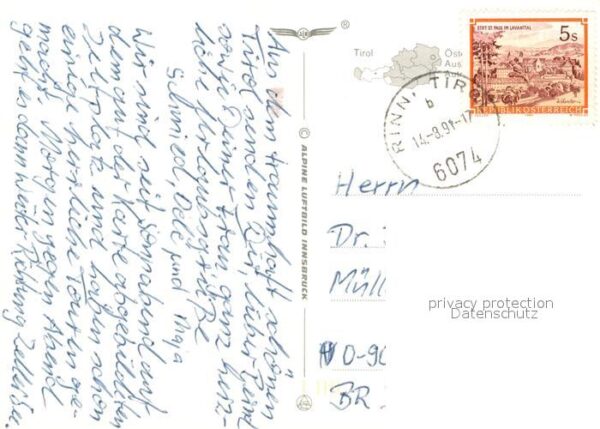 Aus dem traumhaft schönen
Tirol senden Dir, lieber
sowie Deiner Frau, ganz herz-
liche Urlaubsgrüße
und Maja
Wir sind seit Sonnabend auf
dem auf der Karte abgebildeten
Zeltplatz und haben schon
einige herrliche Touren ge-
macht. Morgen gegen Abend
geht es dann weiter Richtung
© ALPINE LUFTBILD INNSBRUCK
®
Tirol
STIFT ST. PAUL IM LAVANTTAL
5s
REPUBLIK ÖSTERREICH
RINN, TIROL
b
14.-8.91-17
6074
Herrn
Dr.
Müll
O-90
BR
privacy protection
Datenschutz